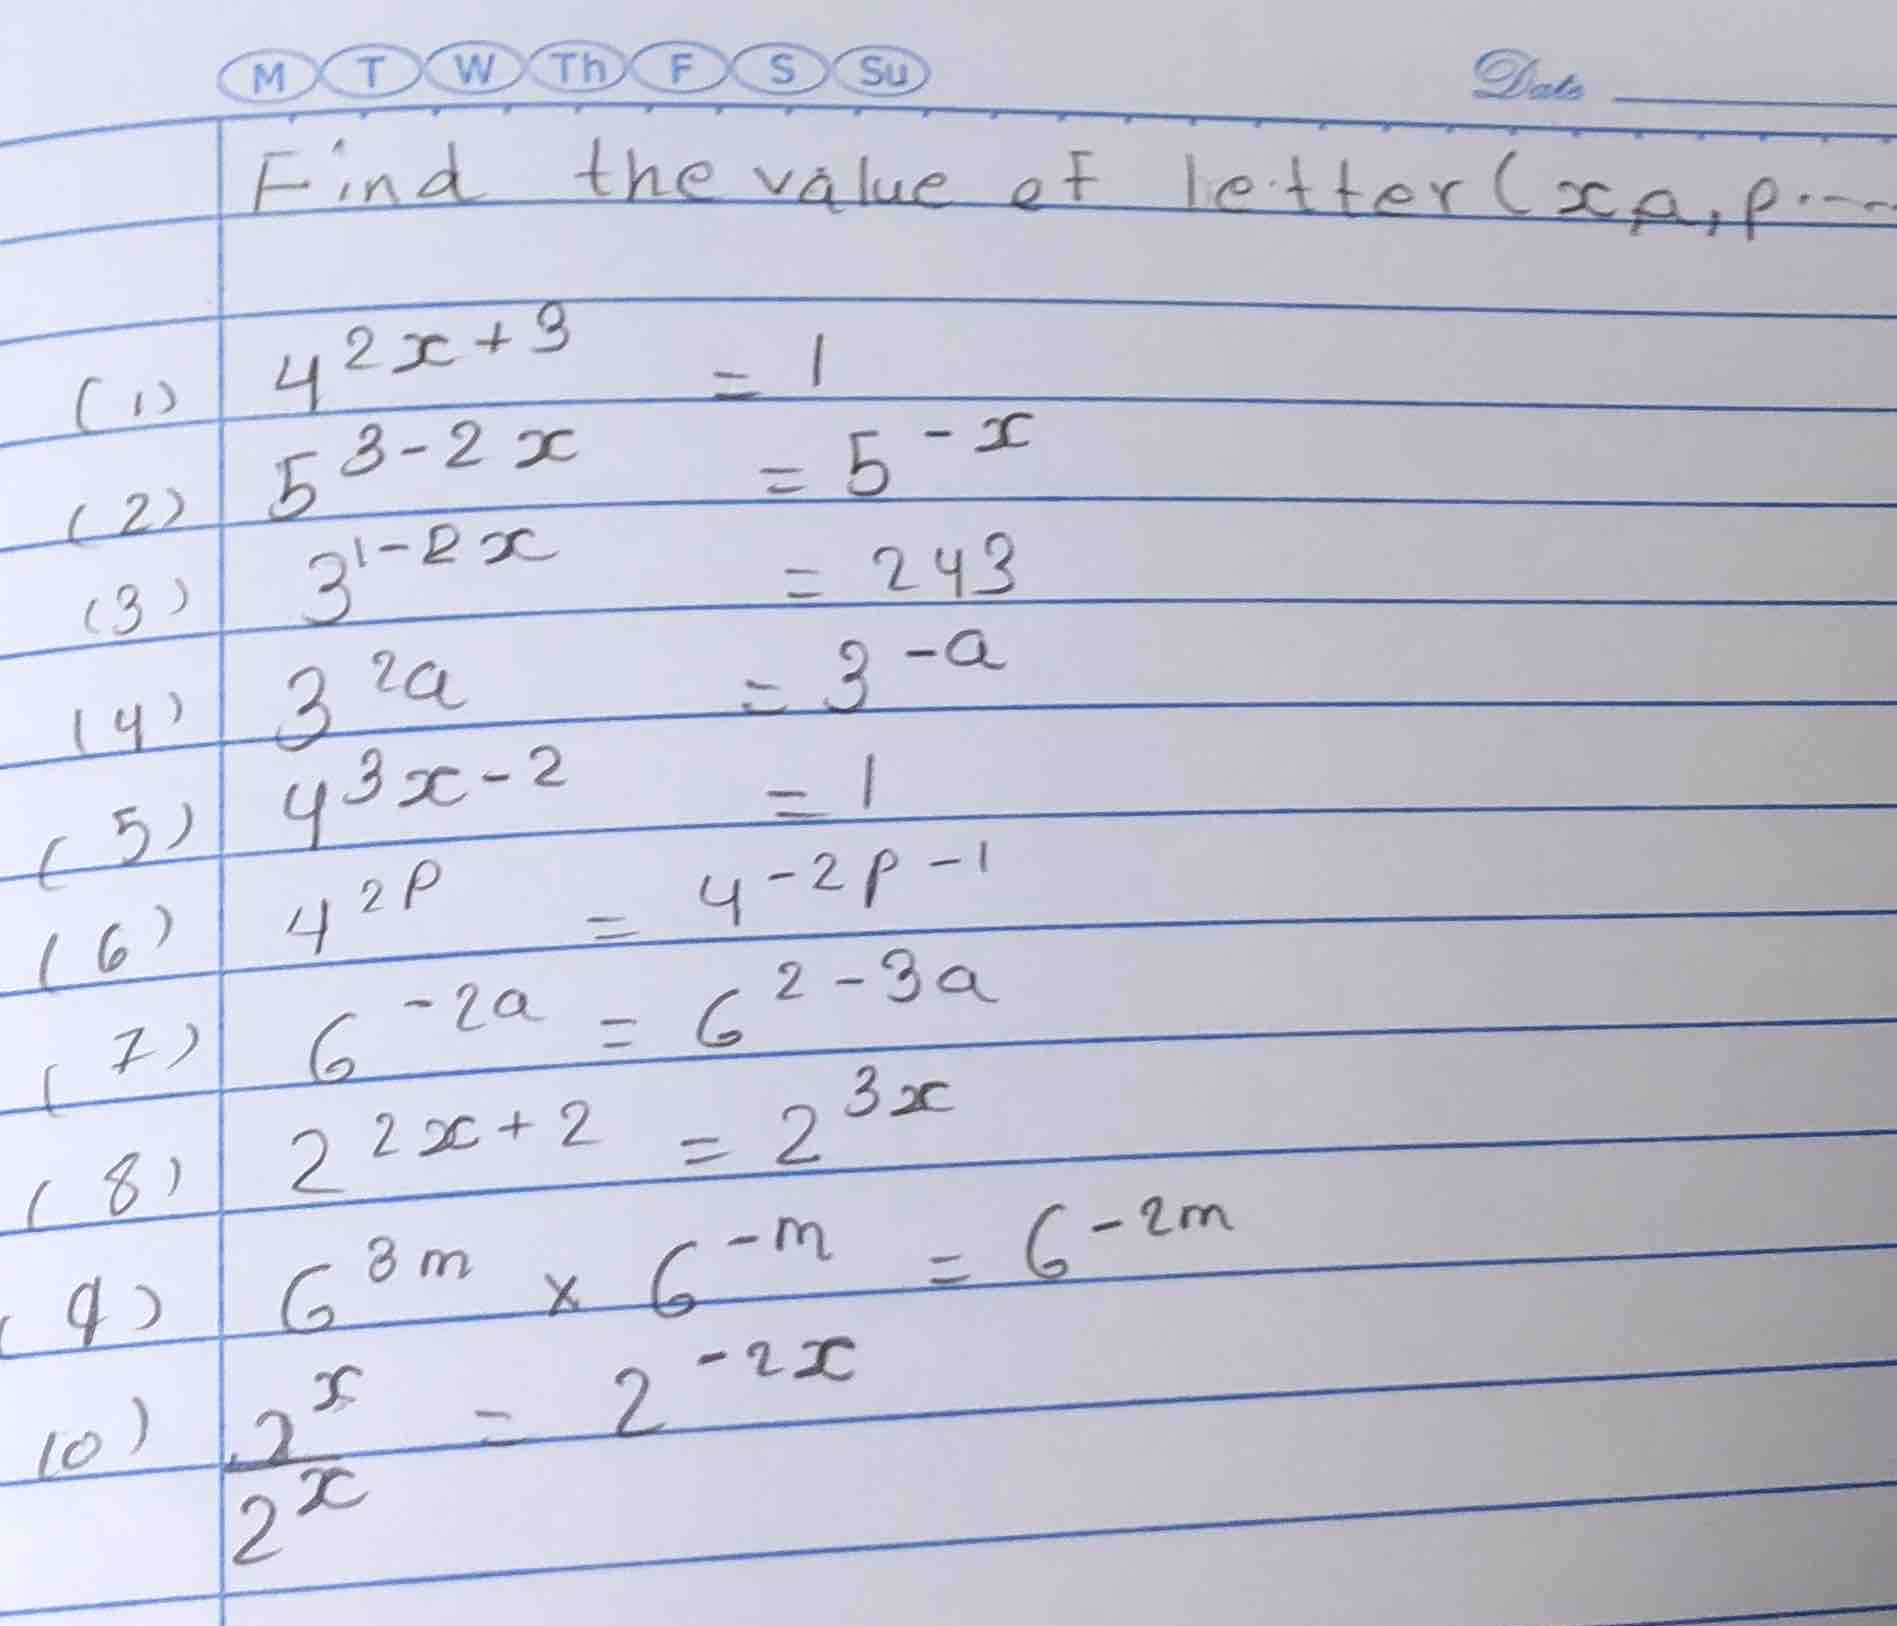 M T W Th F S Su Date
Find the value of letter (x a, p....
(1) 4^{2x+3} = 1
(2) 5^{3-2x} = 5^{-x}
(3) 3^{1-2x} = 243
(4) 3^{2a} = 3^{-a}
(5) 4^{3x-2} = 1
(6) 4^{2p} = 4^{-2p-1}
(7) 6^{-2a} = 6^{2-3a}
(8) 2^{2x+2} = 2^{3x}
(9) 6^{3m} × 6^{-m} = 6^{-2m}
10) \frac{2^x}{2^x} = 2^{-2x}